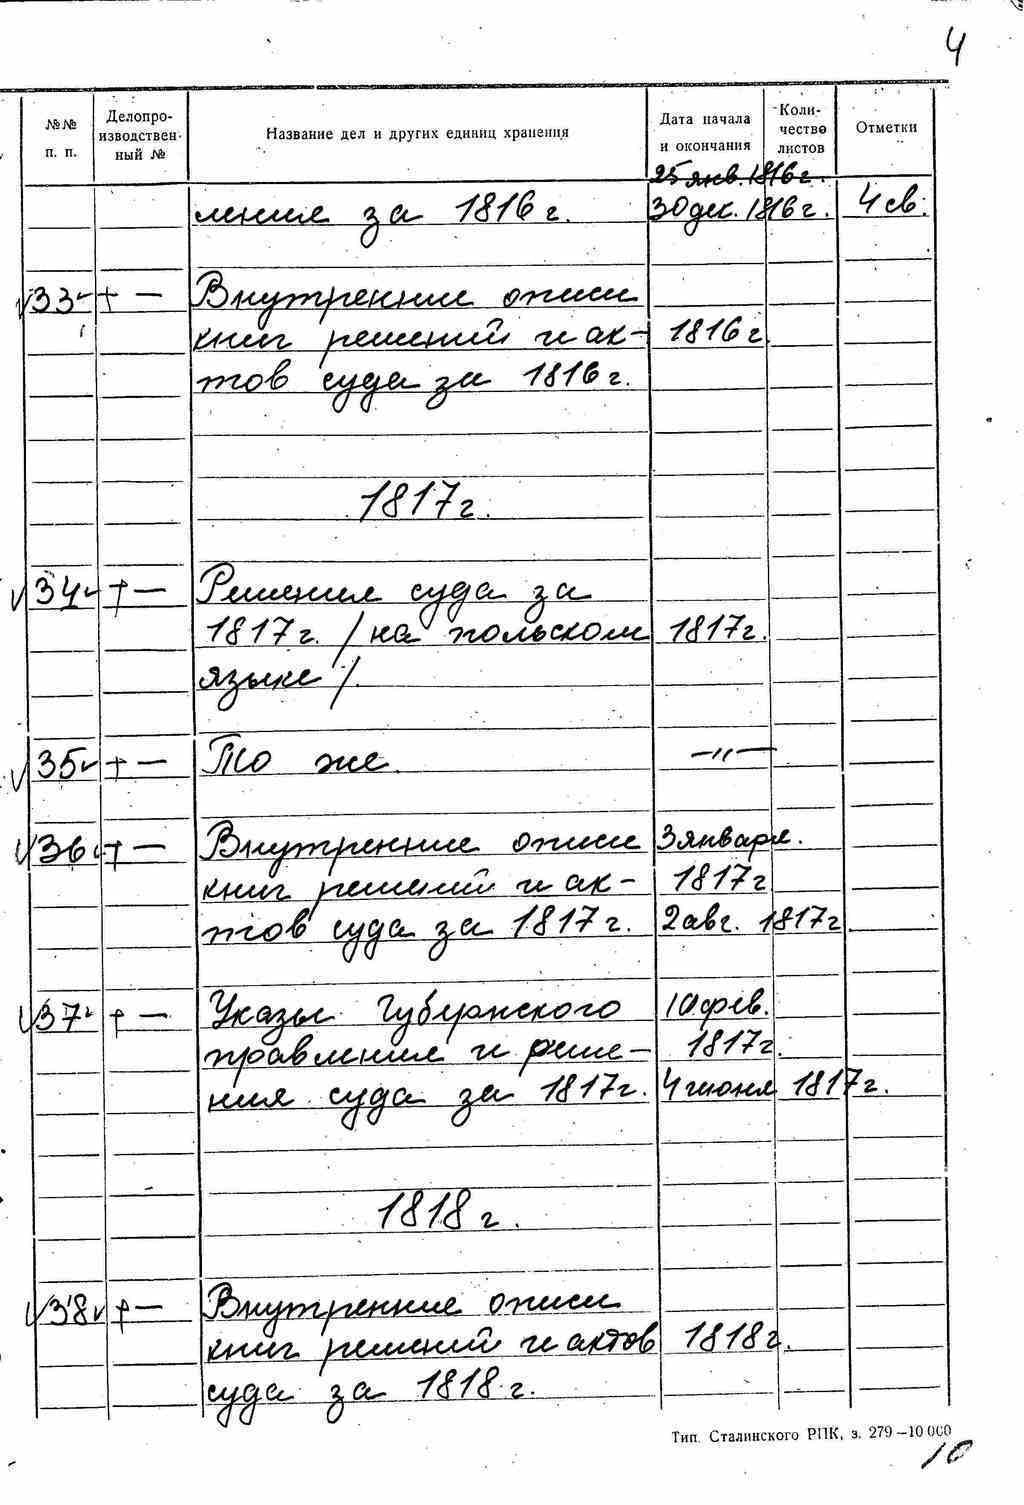 4
№№ п. п. Делопроизводствен- ный № Название дел и других единиц хранения Дата начала и окончания Количество листов Отметки
25 янв. 1816 г.
ления за 1816 г. 30 дек. 1816 г. 4 св.
33 + — Внутренние описи
книг решений и ак- 1816 г.
тов суда за 1816 г.
1817 г.
34 + — Решения суда за
1817 г. /на польском 1817 г.
языке/.
35 + — То же. —"—
36 + — Внутренние описи 3 января.
книг решений и ак- 1817 г
тов суда за 1817 г. 2 авг. 1817 г.
37 + — Указы Губернского 10 фев.
правления и реше- 1817 г.
ния суда за 1817 г. 4 июня 1817 г.
1818 г.
38 + — Внутренние описи
книг решений и актов 1818 г.
суда за 1818 г.
Тип. Сталинского РПК, з. 279—10 000
10